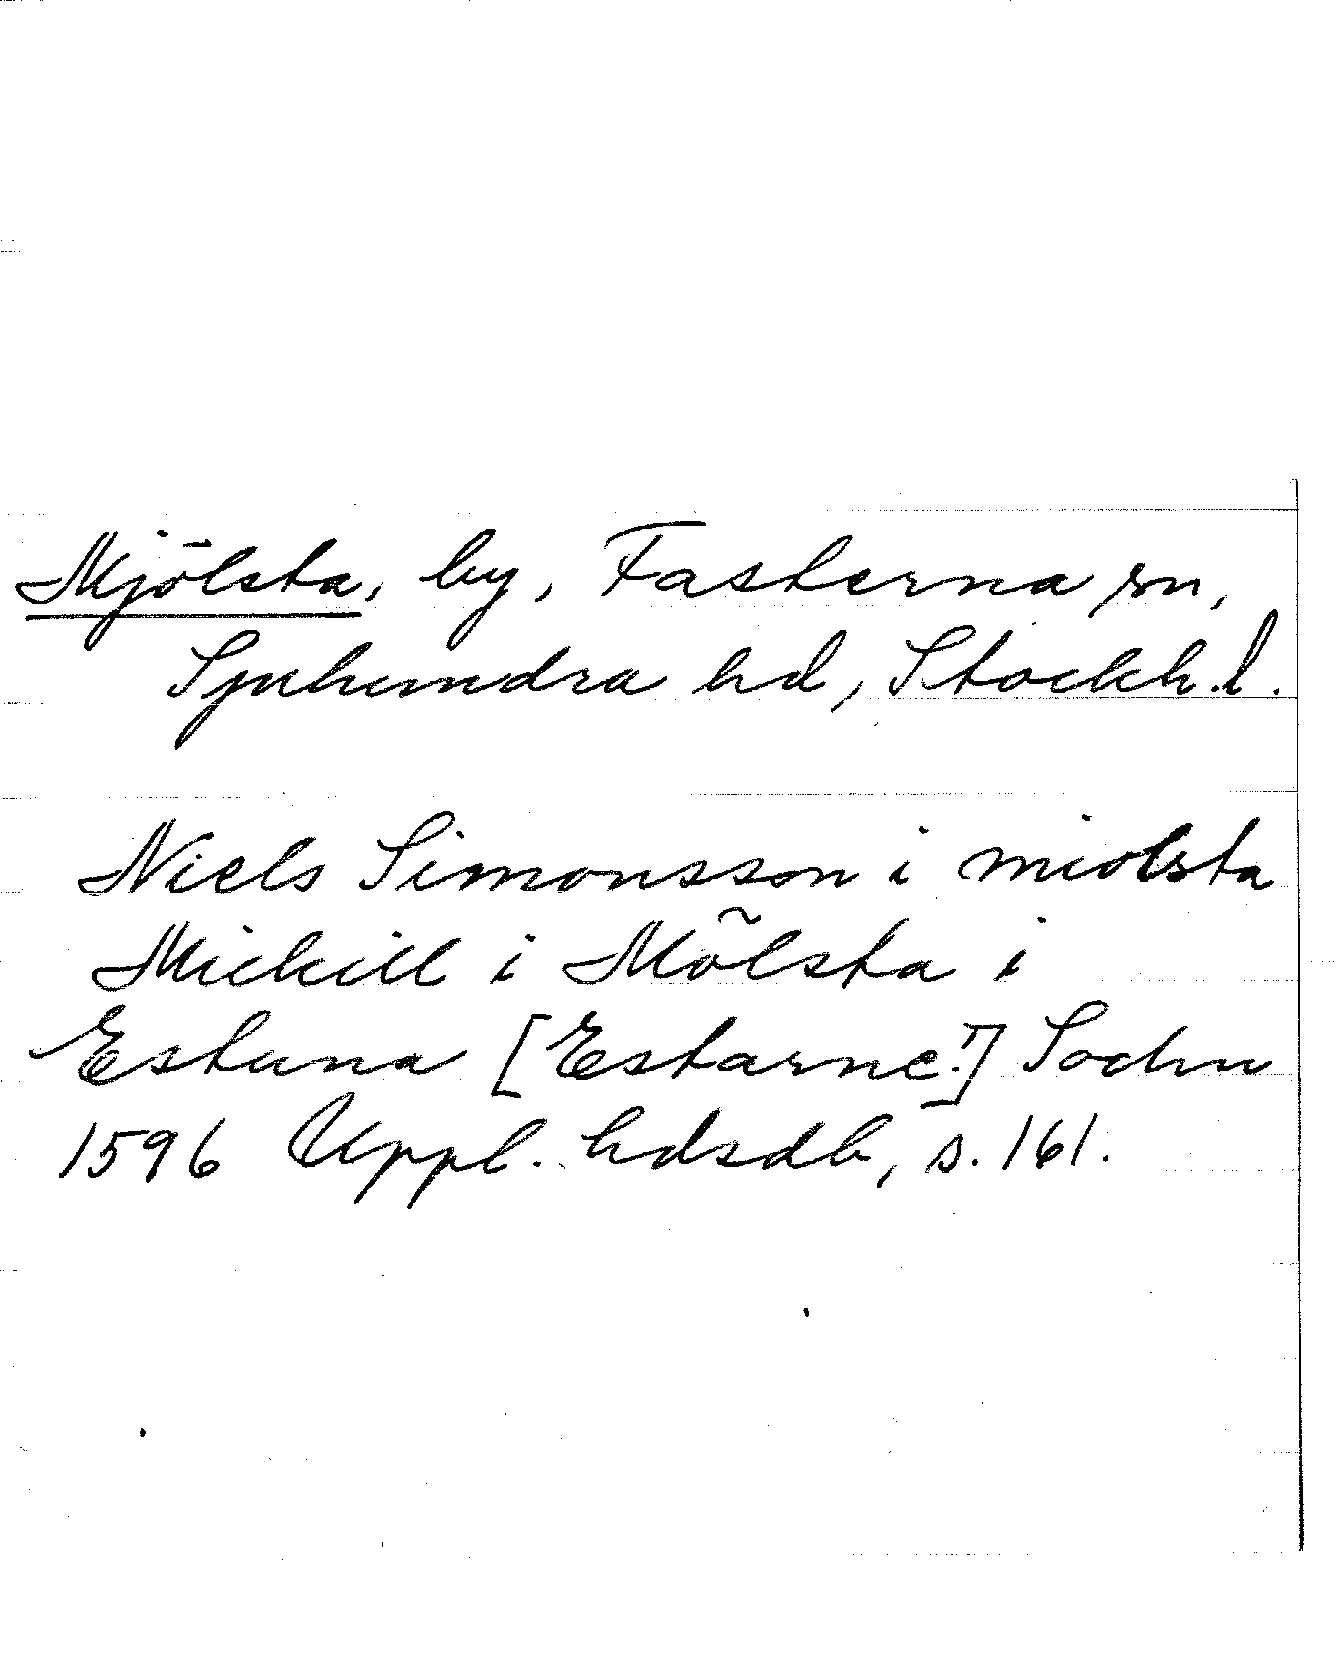 Mjölsta, by, Fasterna sn,
Sjuhundra hd, Stockh.l.
Niels Simonsson i miolsta
Michill i Mõlsta i
Estuna [Estarne!] Sochn
1596 Uppl. hdsdb, s. 161.